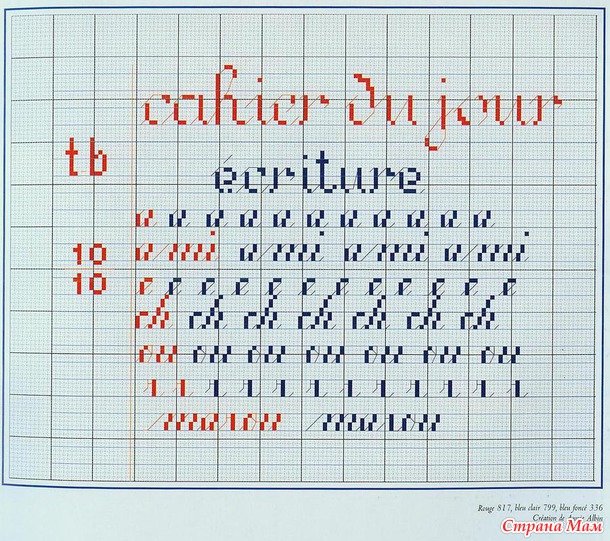 cahier du jour
tb
écriture
a a a a a a a a a a a
ami ami ami ami
10
10
e e e e e e e e e e e e
ch ch ch ch ch ch ch
ou ou ou ou ou ou ou
r r r r r r r r r r r r
marou marou
Rouge 817, bleu clair 799, bleu foncé 336
Création de Albin
Страна Мам